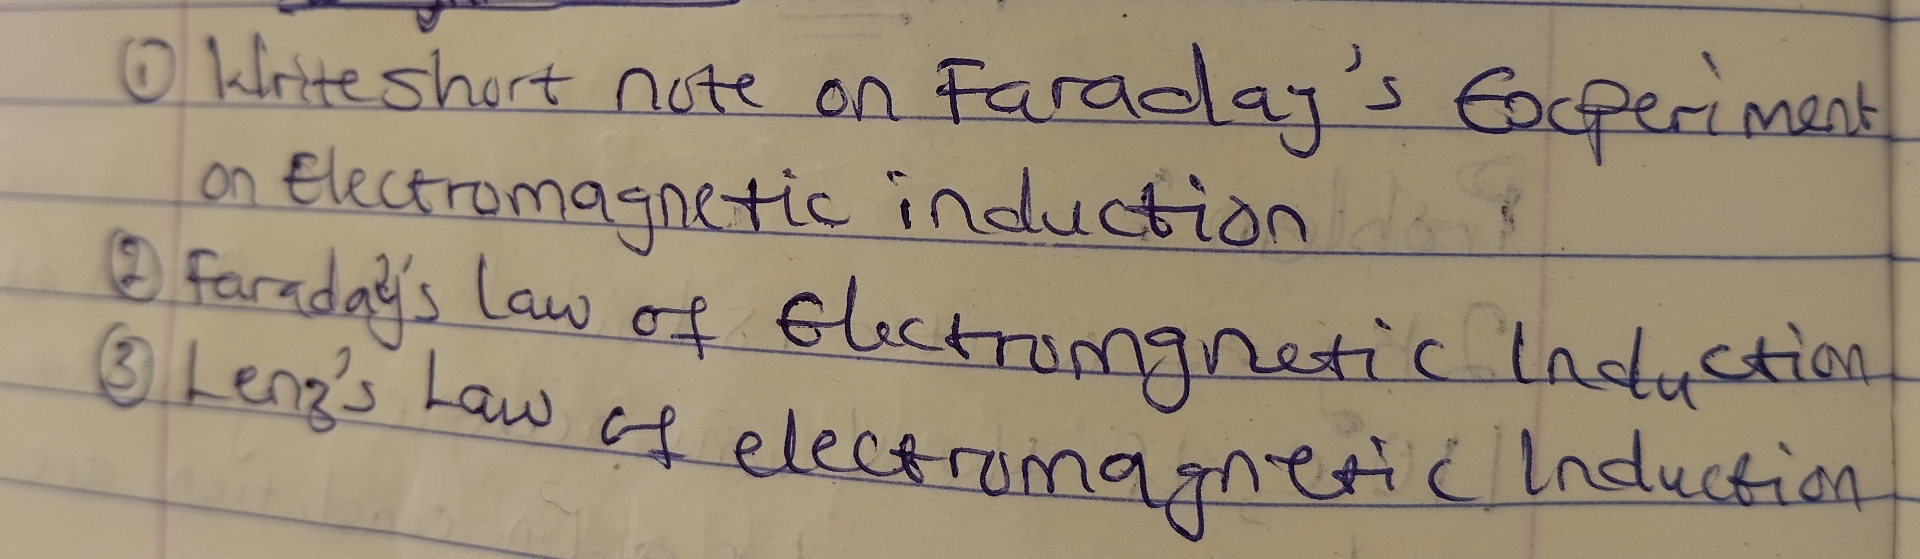 ① Write short note on Faraday's Experiment
on Electromagnetic induction
② Faraday's law of Electromgnetic Induction
③ Lenz's Law of electromagnetic Induction